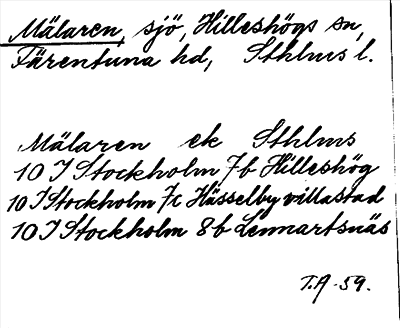 Mälaren, sjö, Hilleshögs sn,
Färentuna hd, Sthlms l.
Mälaren ek Sthlms
10 I Stockholm 7b Hilleshög
10 I Stockholm 7c Hässelby villastad
10 I Stockholm 8b Lennartsnäs
T.A - 59.